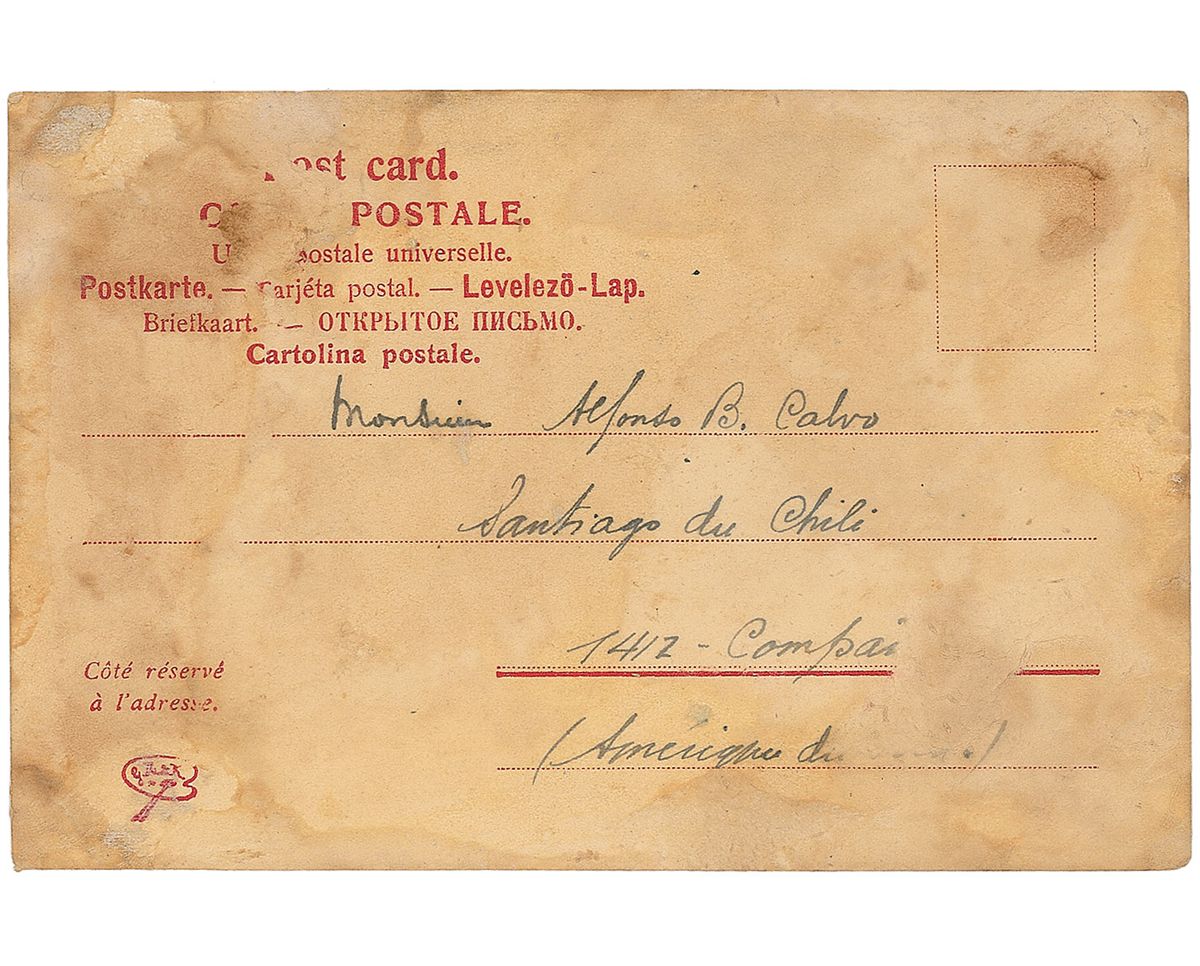 ost card.
POSTALE.
postale universelle.
Postkarte. — Tarjéta postal. — Levelezö-Lap.
Briefkaart. — ОТКРЫТОЕ ПИСЬМО.
Cartolina postale.
Monsieur Alfonso B. Calvo
Santiago du Chili
1412 - Compañ
(Amérique du
Côté réservé
à l'adresse.